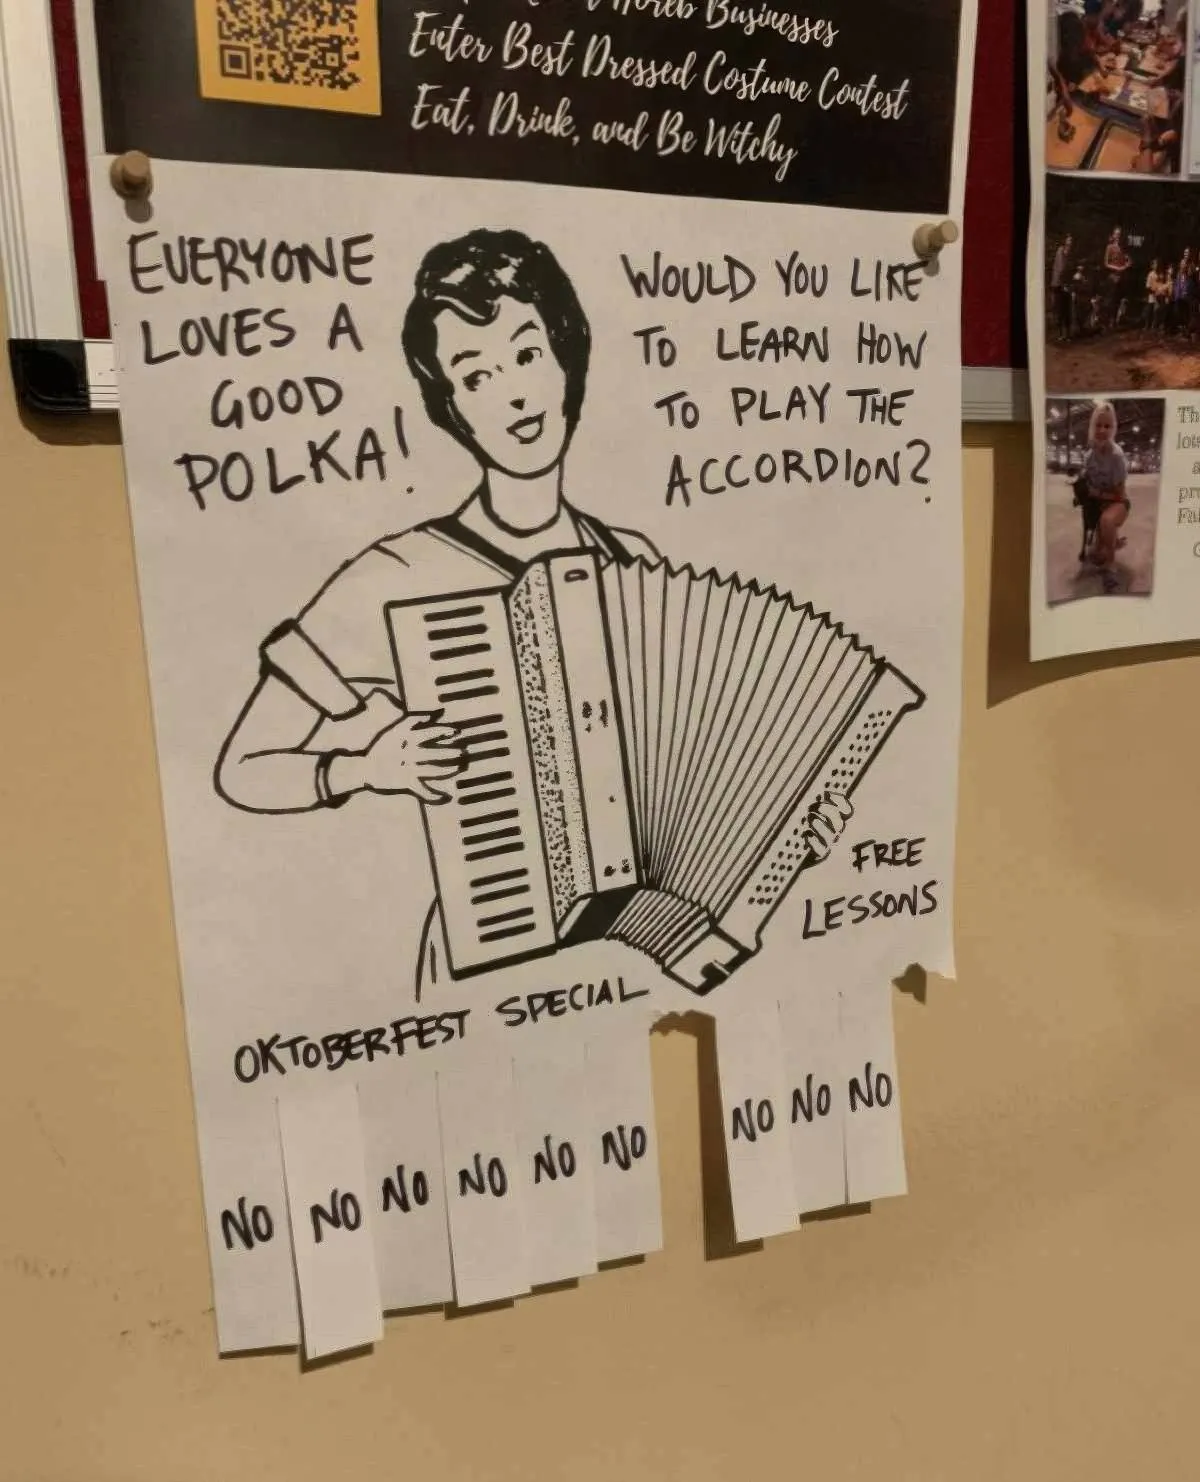 Horeb Businesses
Enter Best Dressed Costume Contest
Eat, Drink, and Be Witchy
EVERYONE
LOVES A
GOOD
POLKA!
WOULD YOU LIKE
TO LEARN HOW
TO PLAY THE
ACCORDION?
FREE
LESSONS
OKTOBERFEST SPECIAL
NO NO NO NO NO NO NO NO NO